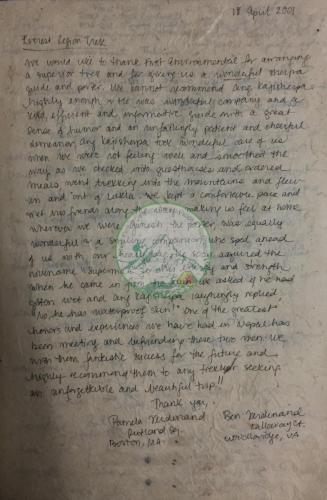 18 April 2001
Everest Region Trek
We would like to thank that Environmental for arranging
a superior trek and for giving us a wonderful sherpa
guide and porter. We cannot recommend Ang kaji sherpa
highly enough. He was wonderful company and a
kind, efficient and informative guide with a great
sense of humor and an unfailingly patient and cheerful
demeanor. Ang kaji sherpa took wonderful care of us
when we were not feeling well and smoothed the
way as we checked into guesthouses and ordered
meals, went trekking into the mountains and flew
in and out of Lukla. We kept a comfortable pace and
met his friends along the way, making us feel at home
wherever we were. the porter was equally
wonderful as a smiling companion who sped ahead
of us with our He soon acquired the
nickname "Superman" and strength.
When he came in we asked if he had
gotten wet and Ang Kaji sherpa laughingly replied
"No, he has waterproof skin!" One of the greatest
honors and experiences we have had in Nepal has
been meeting and befriending these two men. We
wish them fantastic success for the future and
highly recommend them to any trekker seeking
an unforgettable and beautiful trip!!
Thank you,
Pamela Ferdinand
Rutland Sq.
Boston, MA.
Ben Ferdinand
Callaway Ct.
VA